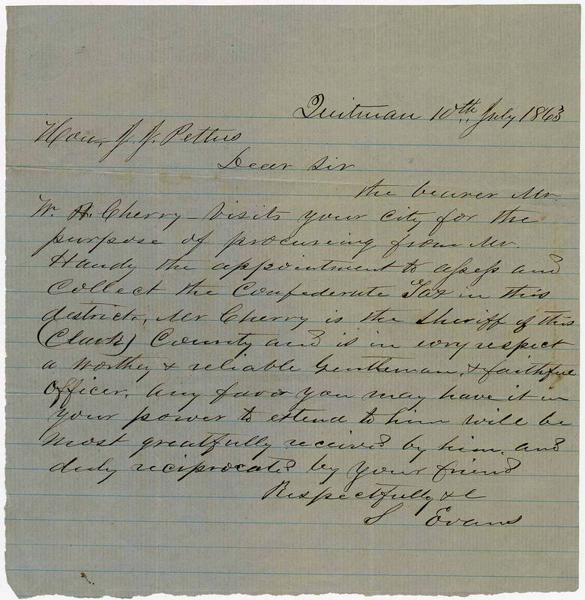 Quitman 10th July 1863
Hon, J. J. Pettus
Dear Sir
the bearer Mr.
W. H. Cherry - Visits your City for the
purpose of procureing from Mr.
Handy the appointment to assess and
Collect the Confederate Tax in this
district, Mr Cherry is the Sheriff of this
(Clark) County and is in evry respect
a worthey & reliable Gentleman, & faithful
officer, any favor you may have it in
your power to extend to him will be
most greatfully received by him, and
duly reciprocated by your friend
Respectfully &c
S Evans